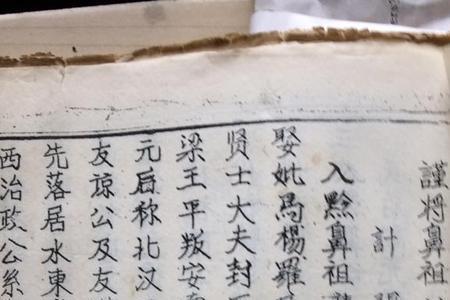 謹将鼻祖
計
入黔鼻祖
娶妣馬楊羅
贤士大夫封
梁王平叛安
元后称北汉
友諒公及友
先落居水東
西治政公系